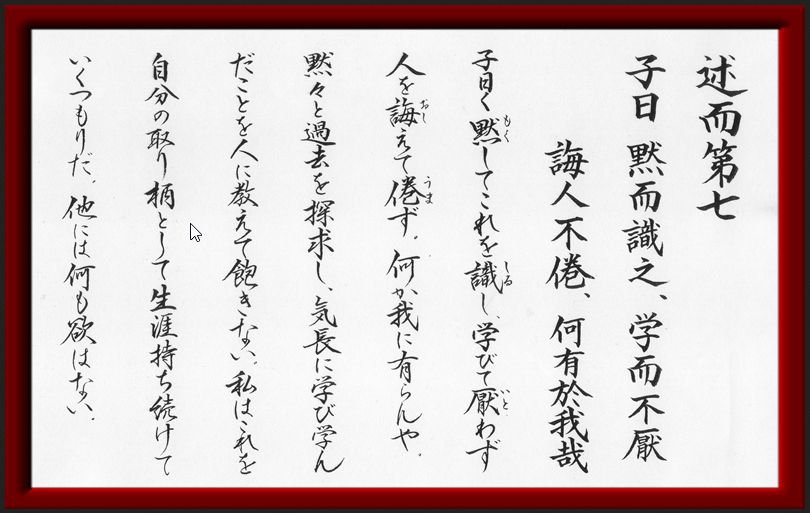 述而第七
子曰 黙而識之、学而不厭
誨人不倦、何有於我哉
子曰く黙してこれを識し、学びて厭わず
人を誨えて倦ず。何か我に有らんや。
黙々と過去を探求し、気長に学び学ん
だことを人に教えて飽きない。私はこれを
自分の取り柄として生涯持ち続けて
いくつもりだ。他には何も欲はない。
もく
しる
いと
おし
うま